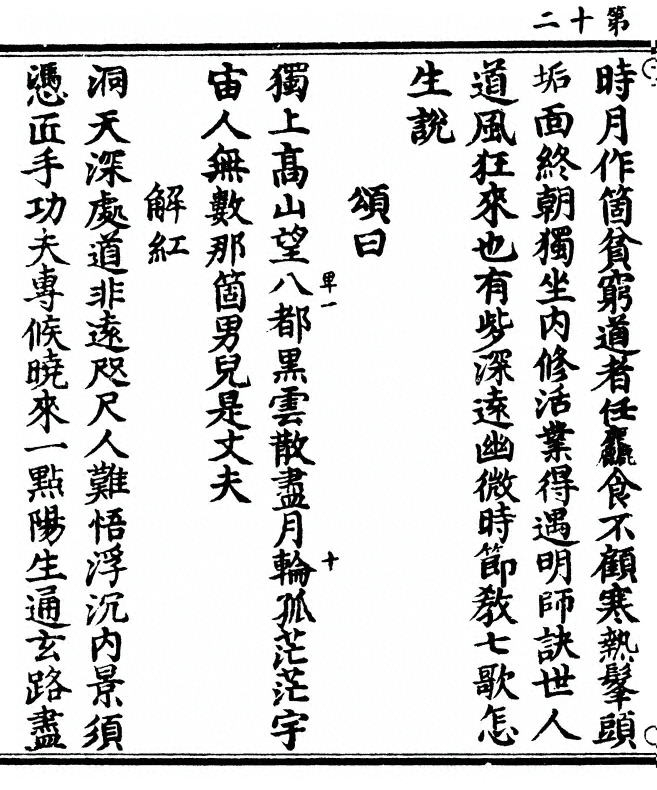 第十二
時月作箇貧窮道者任麤食不顧寒熱髼頭
垢面終朝獨坐内修活業得遇明師訣世人
道風狂來也有些深遠幽微時節教七歌怎
生説
頌曰
獨上高山望八都黒雲散盡月輪孤茫茫宇
宙人無數那箇男兒是丈夫
解紅
洞天深處道非遠咫尺人難悟浮沉内景須
憑匠手功夫專候曉來一點陽生通玄路盡
十